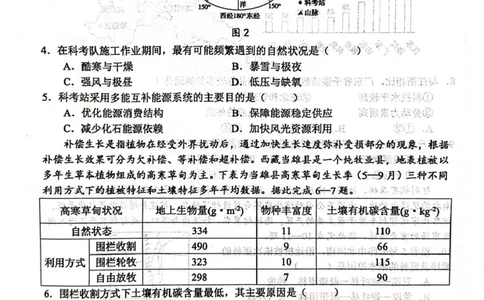 150°
洋
150°
科考站
山脉
西经180°东经
图 2
4．在科考队施工作业期间，最有可能频繁遇到的自然状况是（　　）
A．酷寒与干燥　　B．暴雪与极夜
C．强风与极昼　　D．低压与缺氧
5．科考站采用多能互补能源系统的主要目的是（　　）
A．优化能源消费结构　　B．保障能源稳定供应
C．减少化石能源依赖　　D．加快风光资源利用
补偿生长是指植物在经受外界扰动后，通过加快生长速度弥补受损部分的现象，根据
补偿生长效果可分为欠补偿、等补偿和超补偿。西藏当雄县是一个纯牧业县，地表植被以
多年生草本植物组成的高寒草甸为主。下表为当雄县高寒草甸生长季（5—9月）三种不同
利用方式下的植被特征和土壤特征多年平均数据。据此完成6—7题。
高寒草甸状况　地上生物量(g·m⁻²)　物种丰富度　土壤有机碳含量(g·kg⁻²)
自然状态　334　11　110
围栏收割　490　9　66
利用方式　围栏轮牧　323　10　115
自由放牧　298　7　90
6．围栏收割方式下土壤有机碳含量最低，其主要原因是（